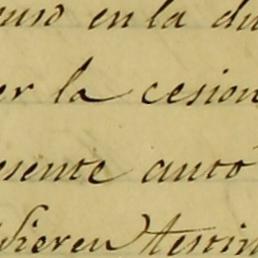 puso en la du
er la cesion
esente auto
dieren testim